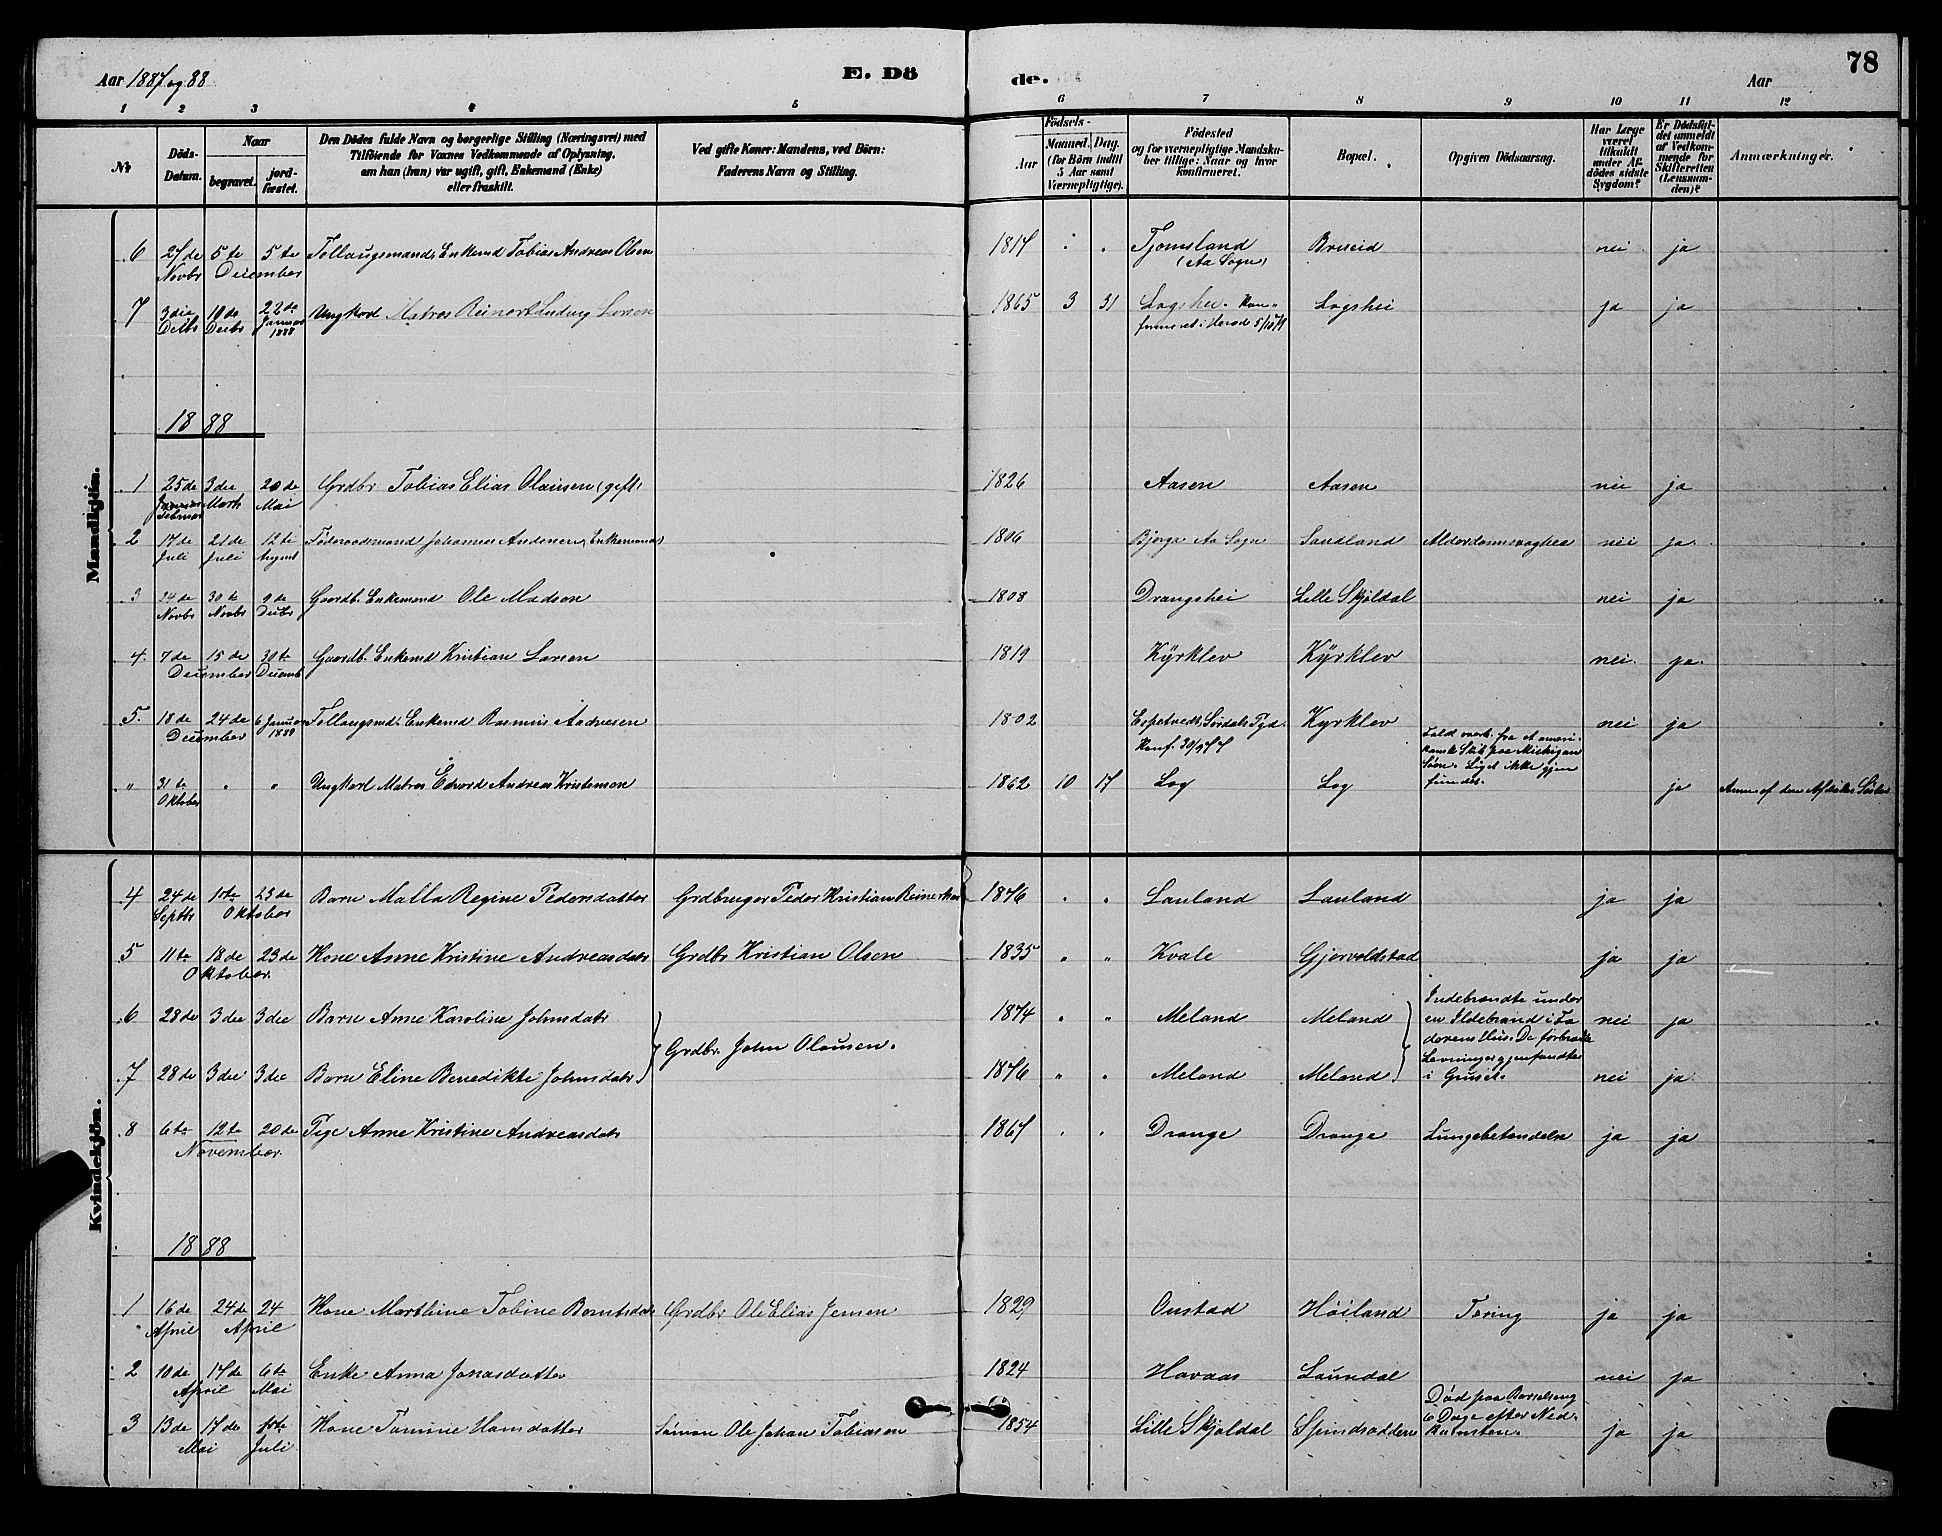 Aar 1887 og 88 E. Dö de. Aar 78
1 2 3 4 5 6 7 8 9 10 11 12
№
Döds-Datum.
Naar
begravet.
jord-fæstet.
Den Dödes fulde Navn og borgerlige Stilling (Næringsvei) med
Tilföiende for Voxnes Vedkommende af Oplysning,
om han (hun) var ugift, gift, Enkemand (Enke)
eller fraskilt.
Ved gifte Koner: Mandens, ved Börn:
Faderens Navn og Stilling.
Födsels-
Aar
Maaned. Dag.
(for Börn indtil
5 Aar samt
Værnepligtige).
Födested
og for værnepligtige Mandska-
ber tillige: Naar og hvor
konfirmeret.
Bopæl.
Opgiven Dödsaarsag.
Har Læge
været
tilkaldt
under Af-
dödes sidste
Sygdom?
Er Dödsfal-
det anmeldt
af Vedkom-
mende for
Skifteretten
(Lensman-
den)?
Anmærkninger.
Mandkjön.
6 27de Novbr 5te 5te December Tollaugsmand, Enkemd Tobias Andreas Olsen 1817 Tjomsland (Aa Sogn) Bruseid nei ja
7 3die Decbr 10de Decbr 22de Januar 1888 Ungkarl Matros Reinert Ludvig Larsen 1865 3 31 Logshei. Kon-
firmeret i Herad 5/10 79 Logshei ja ja
1888
1 25de Februar 3die Marts 20de Mai Grdbr Tobias Elias Olausen (gift) 1826 Aasen Aasen nei ja
2 17de Juli 21de Juli 12te August Föderaadsmand Johannes Andersen, Enkemand 1806 Bjorge Aa Sogn Sandland Alderdomssvaghed nei ja
3 24de Novbr 30te Novbr 9de Decbr Gaardb. Enkemand Ole Madsen 1808 Drangshei Lille Skjöldal nei ja
4 7de 15de December 30te Decemb Gaardb. Enkemd Kristian Larsen 1819 Kÿrklev Kÿrklev nei ja
5 18de 24de December 6 Januar 1889 Tollaugsmd. Enkemd Rasmus Aadnesen 1802 Espetvedt, Sordals Kyrklev nei ja
" 31te Oktober " " Ungkarl Matros Edvard Andreas Kristensen 1862 10 17 Log Log Fald overb. fra et ameri-
kansk Skib paa Michigan
Søen. Liget ikke gjen-
fundet. ja Anm. af den Afdödes Söster
Kvindekjön.
4 24de Septbr 1ste 23de Oktober Barn Malla Regine Pedersdatter Grdbruger Peder Kristian Reinertsen 1876 Lauland Lauland ja ja
5 11te 18de 23de Oktober Kone Anne Kristine Andreasdatr Grdbr Kristian Olsen 1835 Kvale Gjervoldstad ja ja
6 28de 3die 3die Barn Anne Karoline Johnsdatr 1874 Meland Meland nei ja
Grdbr. John Olausen.
Indebrændte under
en Ildebrand i Fa-
derens Hus. De forbrændte
Levninger gjenfandtes
i Gruset.
7 28de 3die 3die Barn Eline Benedikte Johnsdatr 1876 Meland Meland nei ja
8 6te 12te 20de November Pige Anne Kristine Andreasdatr 1867 Drange Drange Lungebetændelse ja ja
1888
1 16de April 24de 24 April Kone Marthine Tobine Berntsdatr Grdbr Ole Elias Jensen 1829 Onstad Höiland Tæring ja ja
2 10de 17de April 6te Mai Enke Anna Jonasdatter 1824 Havaas Laundal nei ja
3 13de 17de Mai 1ste Juli Kone Tomine Hansdatter Sömon Ole Johan Tobiassen 1854 Lille Skjöldal Spindsodden Död paa Barselseng
6 Dage efter Ned-
komsten. ja ja